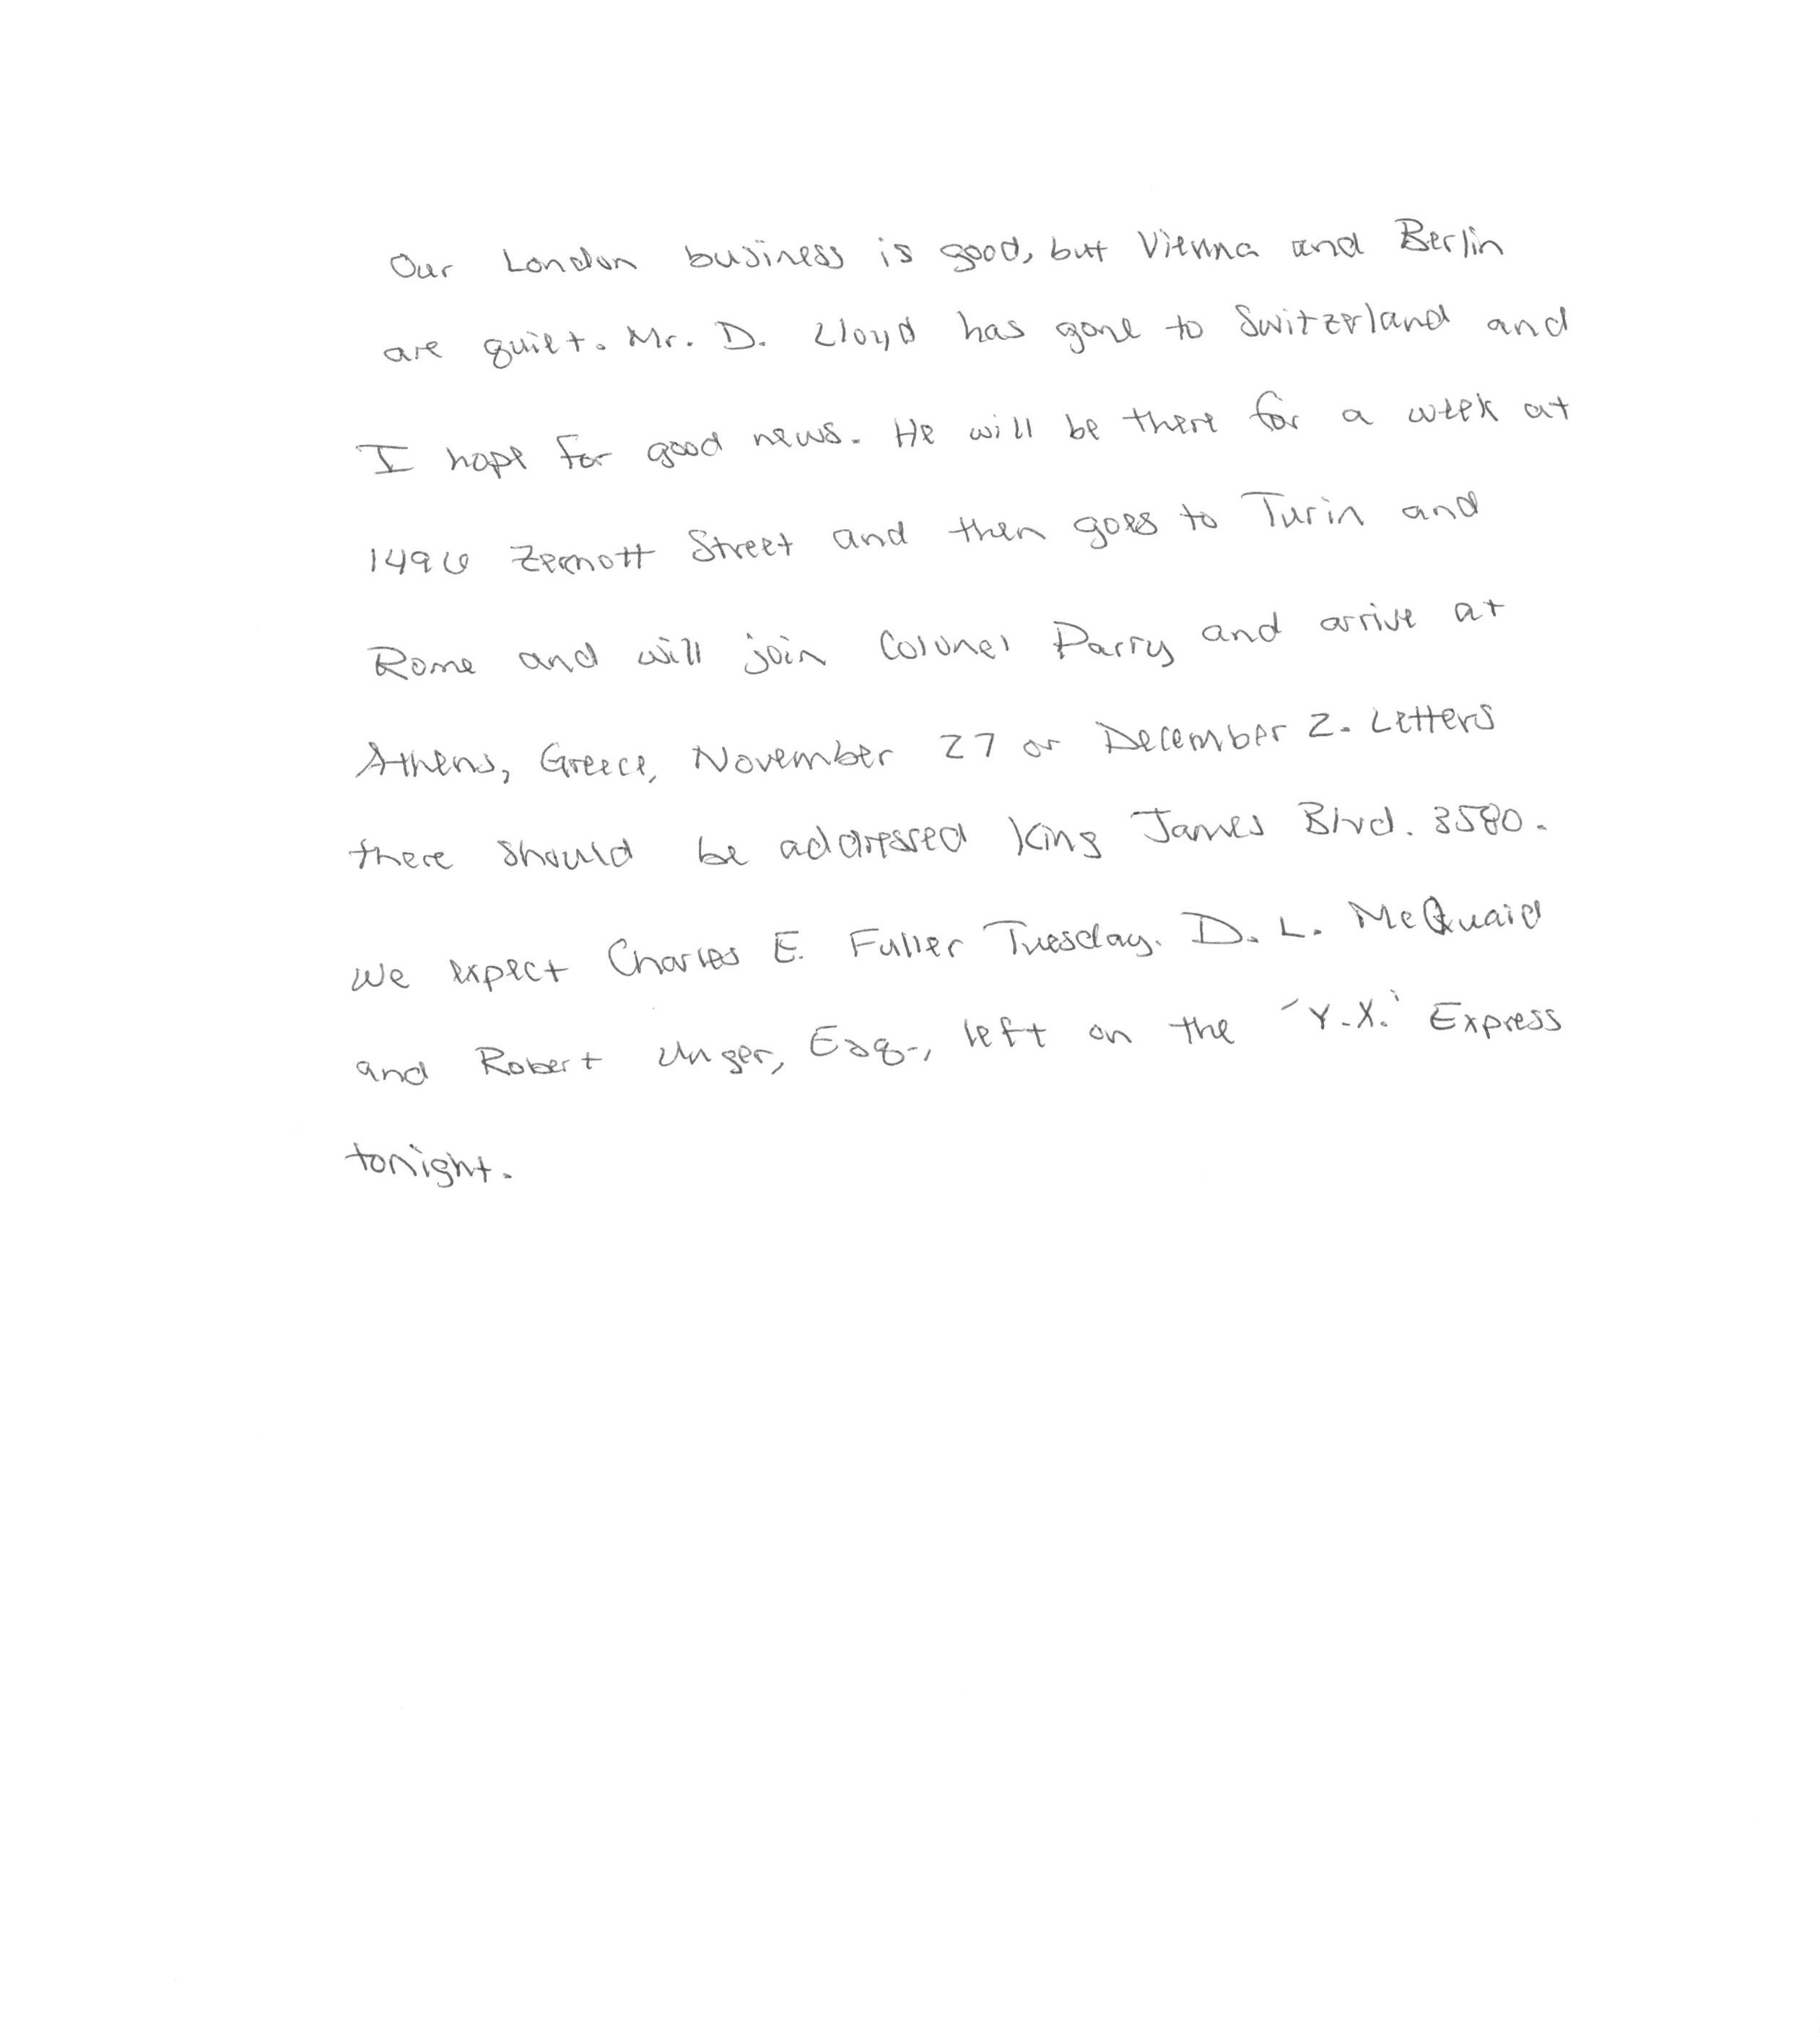 Our London business is good, but Vienna and Berlin
are quiet. Mr. D. Lloyd has gone to Switzerland and
I hope for good news. He will be there for a week at
1496 Zermott Street and then goes to Turin and
Rome and will join Colonel Parry and arrive at
Athens, Greece, November 27 or December 2. Letters
there should be addressed King James Blvd. 3580.
We expect Charles E. Fuller Tuesday. D. L. McQuaid
and Robert Unger, Esq., left on the 'Y.X.' Express
tonight.